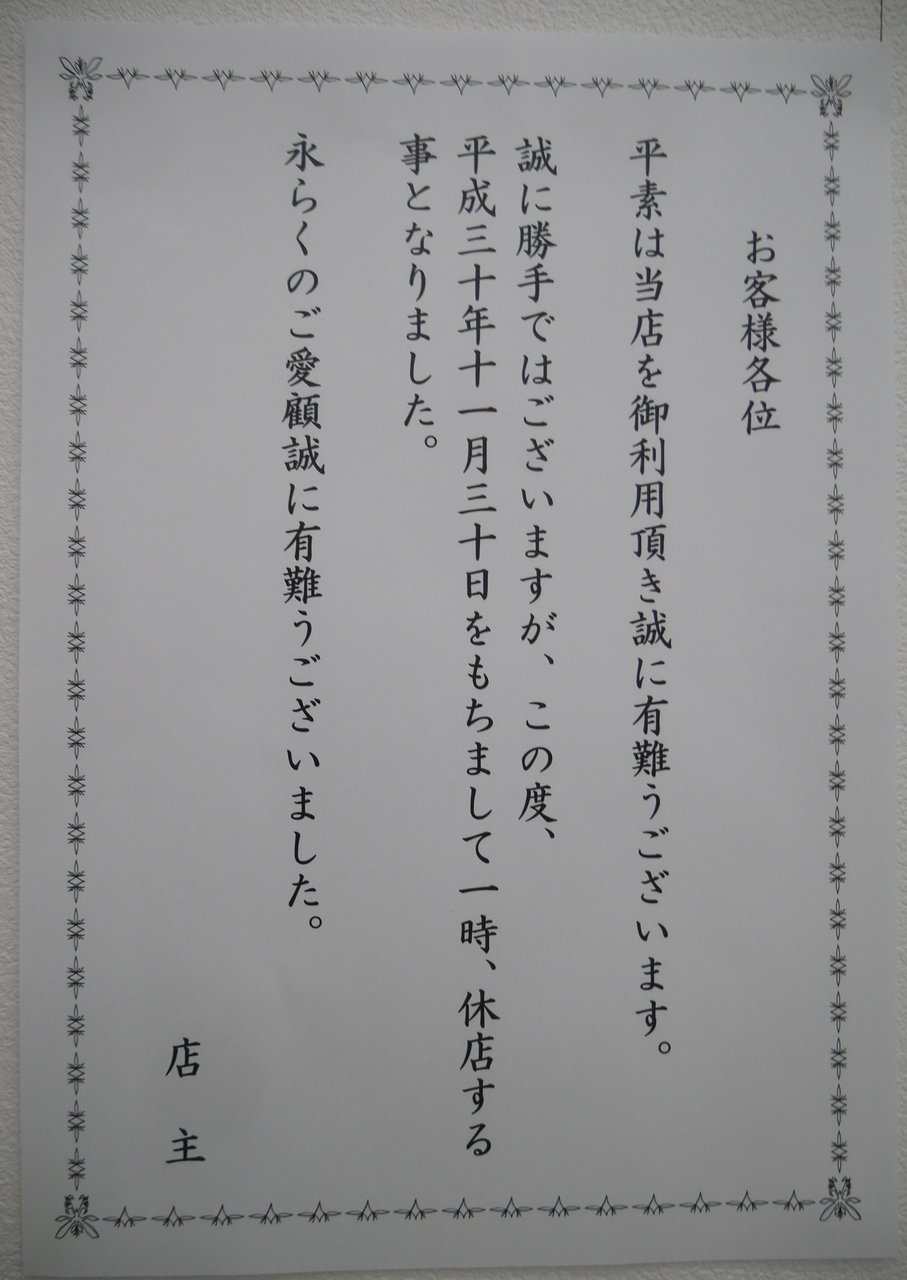 お客様各位
平素は当店を御利用頂き誠に有難うございます。
誠に勝手ではございますが、この度、
平成三十年十一月三十日をもちまして一時、休店する
事となりました。
永らくのご愛顧誠に有難うございました。
店　主